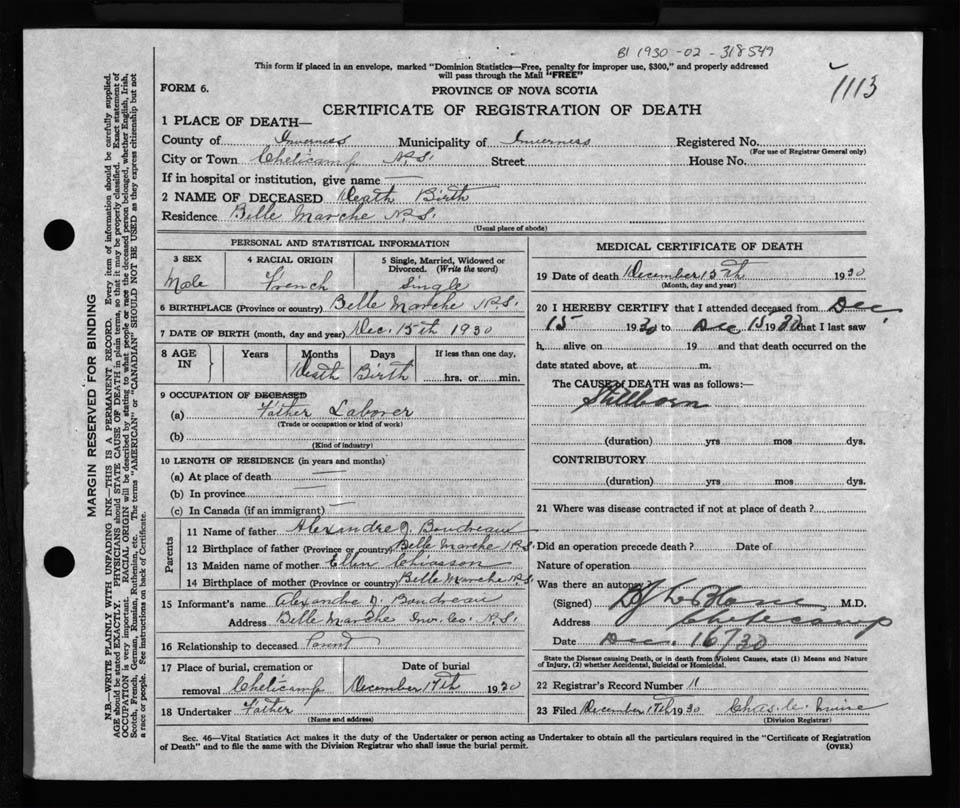 B1 1930-02-318549
1113
This form if placed in an envelope, marked "Dominion Statistics—Free, penalty for improper use, $300," and properly addressed
will pass through the Mail "FREE"
FORM 6.
PROVINCE OF NOVA SCOTIA
CERTIFICATE OF REGISTRATION OF DEATH
1 PLACE OF DEATH—
County of Inverness Municipality of Inverness Registered No.
(For use of Registrar General only)
City or Town Cheticamp N.S. Street House No.
If in hospital or institution, give name —
2 NAME OF DECEASED Death Birth
Residence Belle Marche N.S.
(Usual place of abode)
MARGIN RESERVED FOR BINDING
N.B.—WRITE PLAINLY WITH UNFADING INK—THIS IS A PERMANENT RECORD. Every item of information should be carefully supplied.
AGE should be stated EXACTLY. PHYSICIANS should STATE CAUSE OF DEATH in plain terms, so that it may be properly classified. Exact statement of
OCCUPATION is very important. RACIAL ORIGIN will be described by stating to what people or race the deceased person belonged, whether English, Irish,
Scotch, French, German, Russian, Ruthenian, etc. The terms "AMERICAN" or "CANADIAN" SHOULD NOT BE USED as they express citizenship but not
a race or people. See instructions on back of Certificate.
PERSONAL AND STATISTICAL INFORMATION
3 SEX 4 RACIAL ORIGIN 5 Single, Married, Widowed or
Divorced. (Write the word)
Male French Single
6 BIRTHPLACE (Province or country) Belle Marche N.S.
7 DATE OF BIRTH (month, day and year) Dec. 15th 1930
8 AGE IN Years Months Days If less than one day,
Death Birth hrs. or min.
9 OCCUPATION OF DECEASED
(a) Father Laborer
(Trade or occupation or kind of work)
(b)
(Kind of industry)
10 LENGTH OF RESIDENCE (in years and months)
(a) At place of death —
(b) In province —
(c) In Canada (if an immigrant) —
Parents
11 Name of father Alexandre J. Boudreau
12 Birthplace of father (Province or country) Belle Marche N.S.
13 Maiden name of mother Ellen Chiasson
14 Birthplace of mother (Province or country) Belle Marche N.S.
15 Informant's name Alexandre J. Boudreau
Address Belle Marche Inv. Co. N.S.
16 Relationship to deceased Parent
17 Place of burial, cremation or Date of burial
removal Cheticamp December 17th 1930
18 Undertaker Father
(Name and address)
MEDICAL CERTIFICATE OF DEATH
19 Date of death December 15th 1930
(Month, day and year)
20 I HEREBY CERTIFY that I attended deceased from Dec.
15 1930 to Dec 15 1930 that I last saw
h alive on 19 and that death occurred on the
date stated above, at m.
The CAUSE of DEATH was as follows:—
Stillborn
(duration) yrs mos dys.
CONTRIBUTORY
(duration) yrs mos dys.
21 Where was disease contracted if not at place of death?
Did an operation precede death? Date of
Nature of operation
Was there an autopsy
(Signed) LeBlanc M.D.
Address Cheticamp
Date Dec. 16/30
State the Disease causing Death, or in death from Violent Causes, state (1) Means and Nature
of Injury, (2) whether Accidental, Suicidal or Homicidal.
22 Registrar's Record Number 11
23 Filed December 17th 1930 Chas.
(Division Registrar)
Sec. 46—Vital Statistics Act makes it the duty of the Undertaker or person acting as Undertaker to obtain all the particulars required in the "Certificate of Registration
of Death" and to file the same with the Division Registrar who shall issue the burial permit.
(OVER)